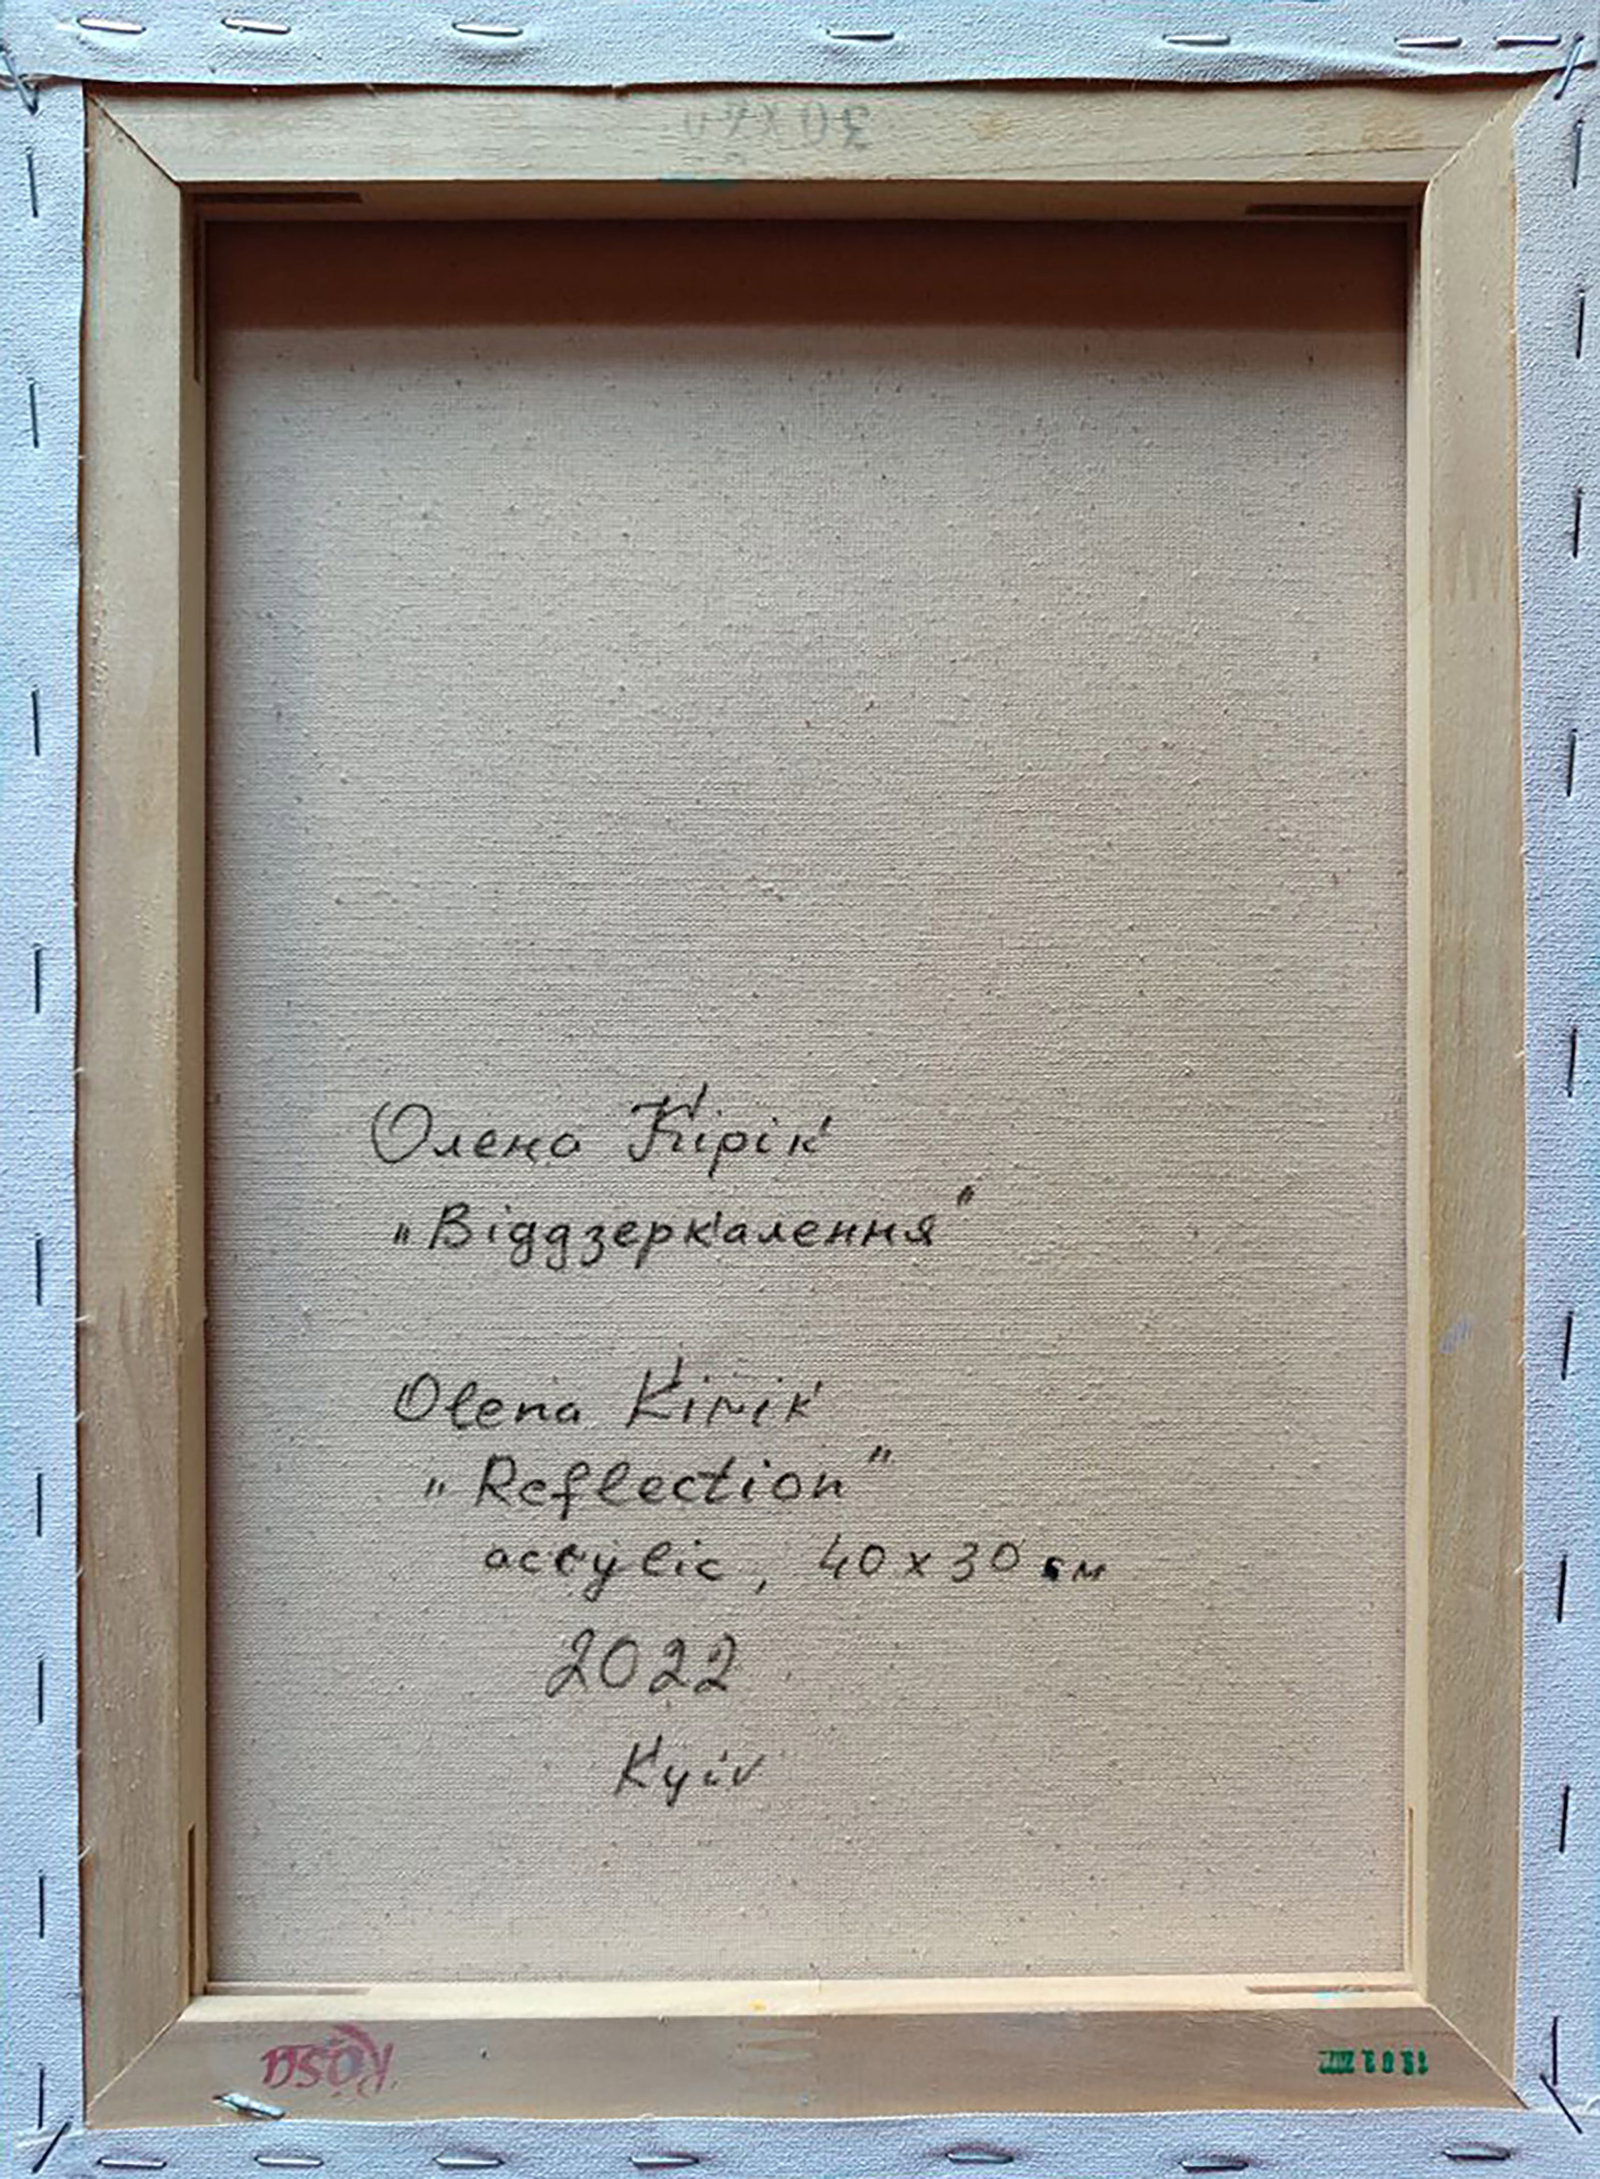 30x40
Олена Кірік
„Віддзеркалення"
Olena Kirik
„Reflection"
acrylic, 40 x 30 см
2022
Kyiv
Rosa